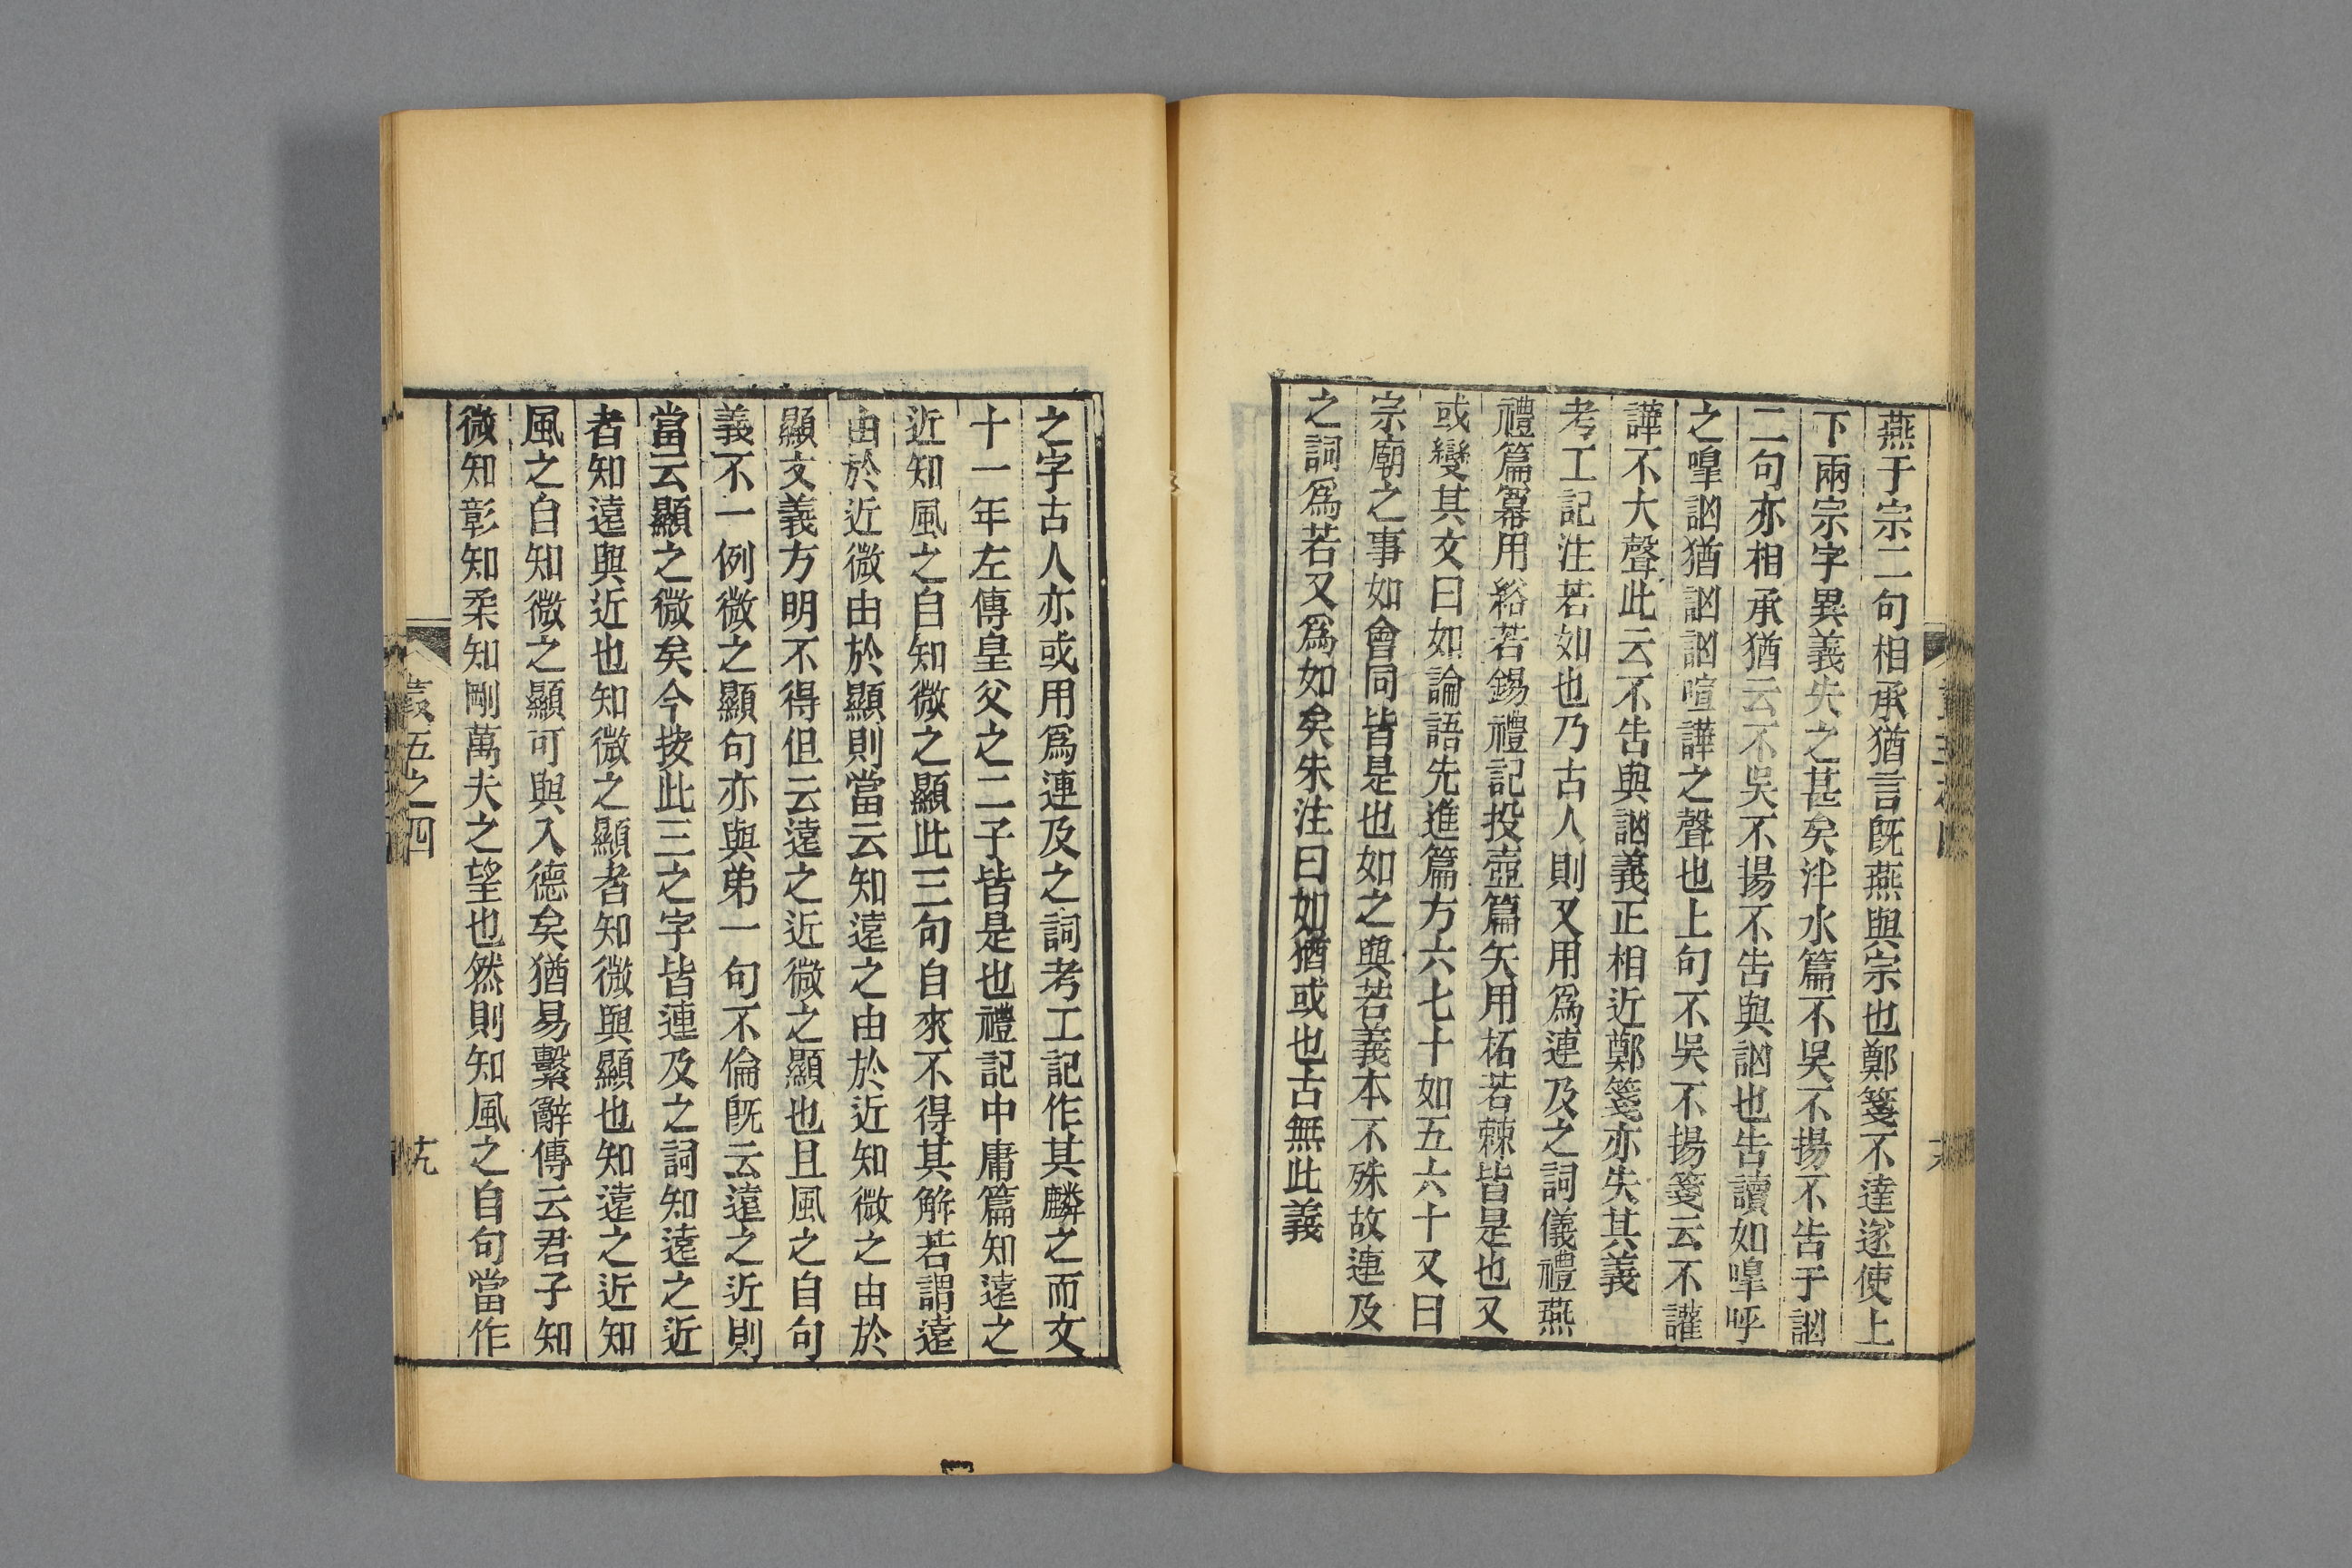 燕于宗二句相承猶言旣燕與宗也鄭箋不達遂使上
下兩宗字異義失之甚矣泮水篇不吳不揚不告于訩
二句亦相承猶云不吳不揚不告與訩也告讀如嘷呼
之嘷訩猶訩訩喧譁之聲也上句不吳不揚箋云不讙
譁不大聲此云不告與訩義正相近鄭箋亦失其義
考工記注若如也乃古人則又用爲連及之詞儀禮燕
禮篇冪用綌若錫禮記投壺篇矢用柘若棘皆是也又
或變其文曰如論語先進篇方六七十如五六十又曰
宗廟之事如會同皆是也如之與若義本不殊故連及
之詞爲若又爲如矣朱注曰如猶或也古無此義
之字古人亦或用爲連及之詞考工記作其麟之而文
十一年左傳皇父之二子皆是也禮記中庸篇知遠之
近知風之自知微之顯此三句自來不得其解若謂遠
由於近微由於顯則當云知遠之由於近知微之由於
顯文義方明不得但云遠之近微之顯也且風之自句
義不一例微之顯句亦與弟一句不倫旣云遠之近則
當云顯之微矣今按此三之字皆連及之詞知遠之近
者知遠與近也知微之顯者知微與顯也知遠之近知
風之自知微之顯可與入德矣猶易繫辭傳云君子知
微知彰知柔知剛萬夫之望也然則知風之自句當作
叢五之四